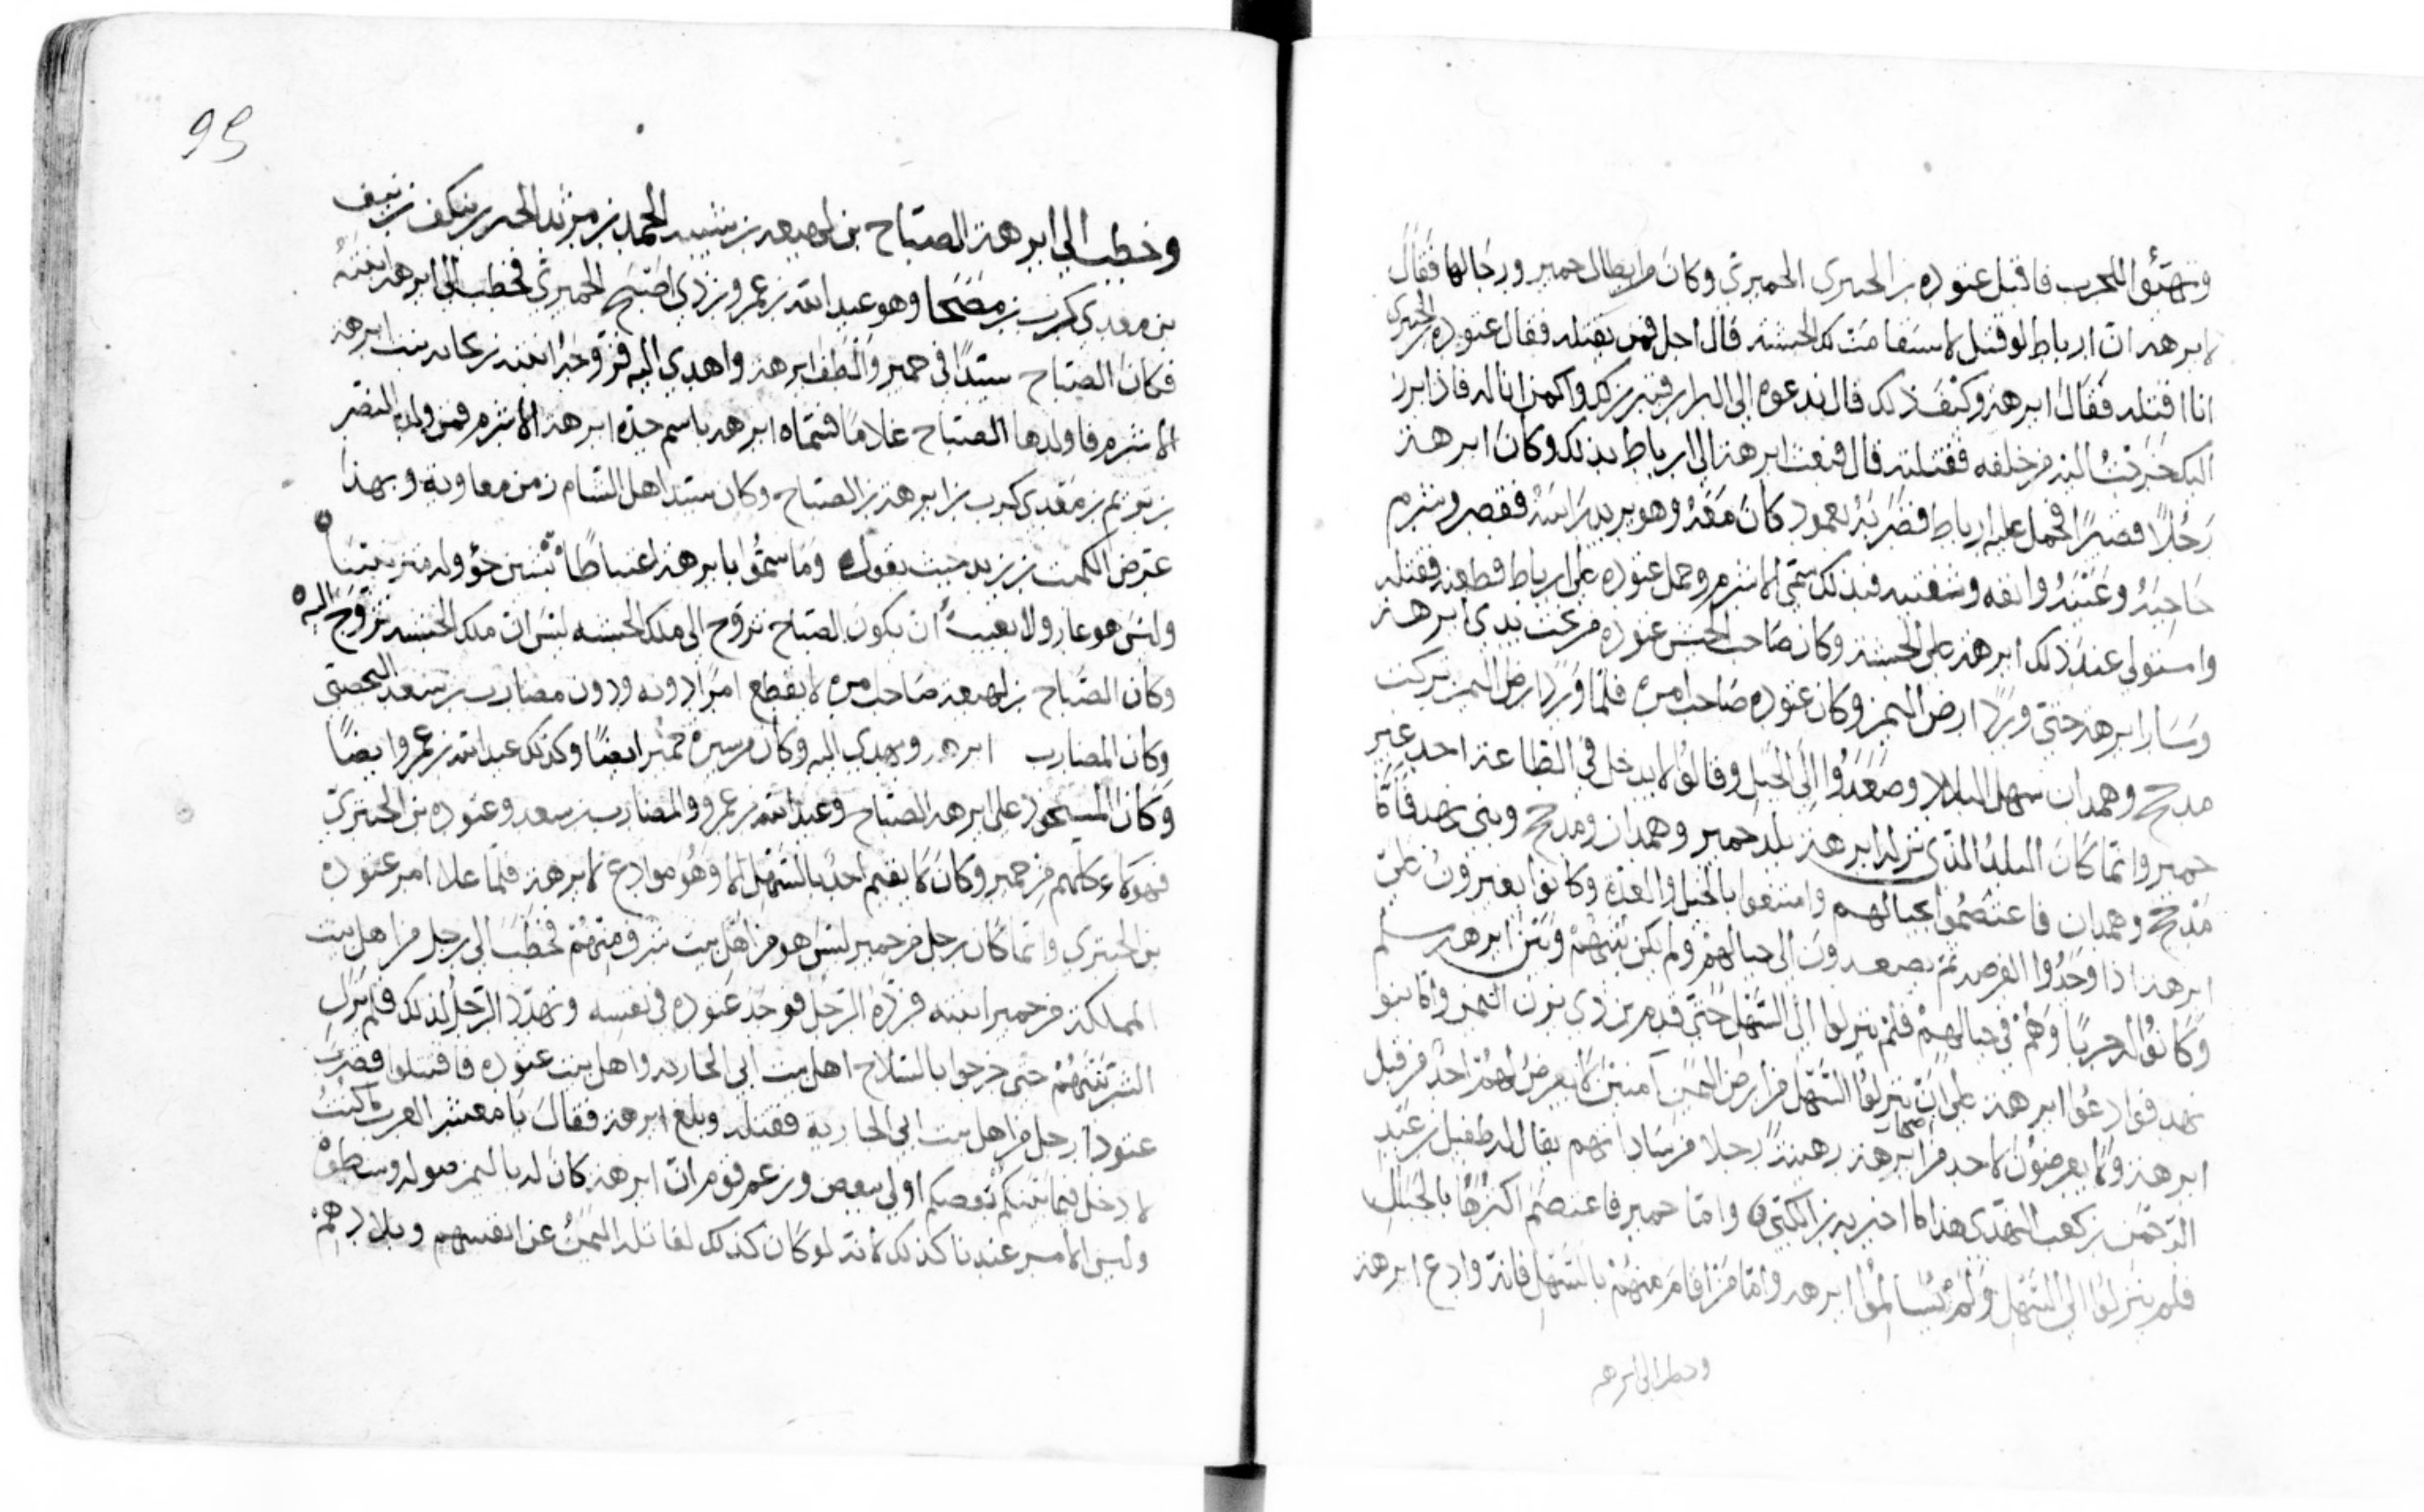 وتهيؤا للحرب فاقبل عتوده بن الحيرى الحميرى وكان من ابطال حمير ورجالها فقال
لابرهه ان ارياط لو قتل لاستقامت لك الحبشه قال اجل فمن يقتله فقال عتوده بن الحيرى
انا اقتله فقال ابرهه وكيف ذلك قال ندعوه الى البراز فيبرز لك واكمن انا له فاذا برز
اليك خرجت اليه من خلفه فقتلته قال فبعث ابرهة الى ارياط بذلك وكان ابرهة
رجلا قصيرا فحمل عليه ارياط فضربه بعمود كان معه وهو يريد راسه فقصر وشرم
حاجبه وعينه وانفه وشفتيه فبذلك سمى الاشرم وحمل عتوده على ارياط فطعنه فقتله
واستولى عند ذلك ابرهه على الحبشه وكان صاحب الحبش عتوده من تحت يدى ابرهة
وسار ابرهه حتى ورد ارض اليمن وكان عتوده صاحب امره فلما ورد ارض اليمن تركت
مذحج وهمدان سهل البلاد وصعدوا الى الجبل وقالوا لا يدخل فى الطاعة احد غير
حمير وانما كان البلد الذى نزله ابرهة بلد حمير وهمدان ومذحج وبنى نهد فاما
مذحج وهمدان فاعتصموا بجبالهم وامتنعوا بالخيل والعده وكانوا يغيرون على
ابرهه اذا وجدوا الفرصه ثم يصعدون الى جبالهم ولم يكن بينهم وبين ابرهه سلم
وكانوا له حربا وهم فى جبالهم فلم ينزلوا الى السهل حتى قدم بن ذى يزن اليمن واما بنوا
نهد فوادعوا ابرهه على ان ينزلوا السهل من ارض اليمن آمنين لا يعرض لهم احد من قبل
ابرهه ولا يعرضون لاحد من اصحاب ابرهه رهينة رجلا من ساداتهم يقال له طفيل بن عبد
الرحمن بن كعب النهدى هذا ما اخبر به بن الكلبى واما حمير فاعتصم اكثرها بالجبال
فلم ينزلوا الى السهل ولم يسالموا ابرهه واما من اقام منهم بالسهل فانه وادع ابرهة
وخطب الى ابرهه
95
وخطب الى ابرهة الصباح بن لهيعه بن شيبه الحمد بن مرثد الخير بن ينكف بن نيف
بن معدى كرب بن مضحا وهو عبد الله بن عمرو بن ذى اصبح الحميرى فخطب الى ابرهه ابنته
فكان الصباح سيدا فى حمير والطف ابرهة واهدى اليه فزوجه ابنته ريحانه بنت ابرهه
الاشرم فاولدها الصباح غلاما فسماه ابرهه باسم جده ابرهة الاشرم فمن ولده النضر
بن يريم بن معدى كرب بن ابرهة بن الصباح وكان سيد اهل الشام زمن معاوية وبهذا
عرض الكميت بن زيد حيث يقول وما سموا بابرهة اغتباطا بشين ختؤوله متزينينا
وليس هو عار ولا بعيب ان يكون الصباح تزوج الى ملك الحبشه ليس ان ملك الحبشه تزوج اليه
وكان الصباح بن لهيعه صاحب امره لا يقطع امرا دونه ودون مضارب بن سعد اليحصبى
وكان المضارب ابرهه ويهدى اليه وكان من سيرة حمير ايضا وكذلك عبد الله بن عمرو ايضا
وكان المستحوذ على ابرهه الصباح وعبد الله بن عمرو والمضارب بن سعد وعتوده بن الحيرى
فهولاء كلهم من حمير وكان لا يقيم احد بالسهل الا وهو موادع لابرهة فلما علا امر عتوده
بن الحيرى وانما كان رجل من حمير ليس هو من اهل بيت شرف منهم فخطب الى رجل من اهل بيت
المملكة من حمير ابنته فرده الرجل فوجد عتوده فى نفسه وتهدد الرجل لذلك فلم يزل
الشر بينهم حتى خرجوا بالسلاح اهل بيت ابى الجاريه واهل بيت عتوده فاقتتلوا فضرب
عتودا رجل من اهل بيت ابى الجاريه فقتله وبلغ ابرهة فقال يا معشر العرب ما كنت
لادخل فيما بينكم بعضكم اولى ببعض وزعم قوم ان ابرهة كان له باليمن صوله وسطوة
وليس الامر عندنا كذلك لانه لو كان كذلك لقاتله اليمن عن انفسهم وبلادهم